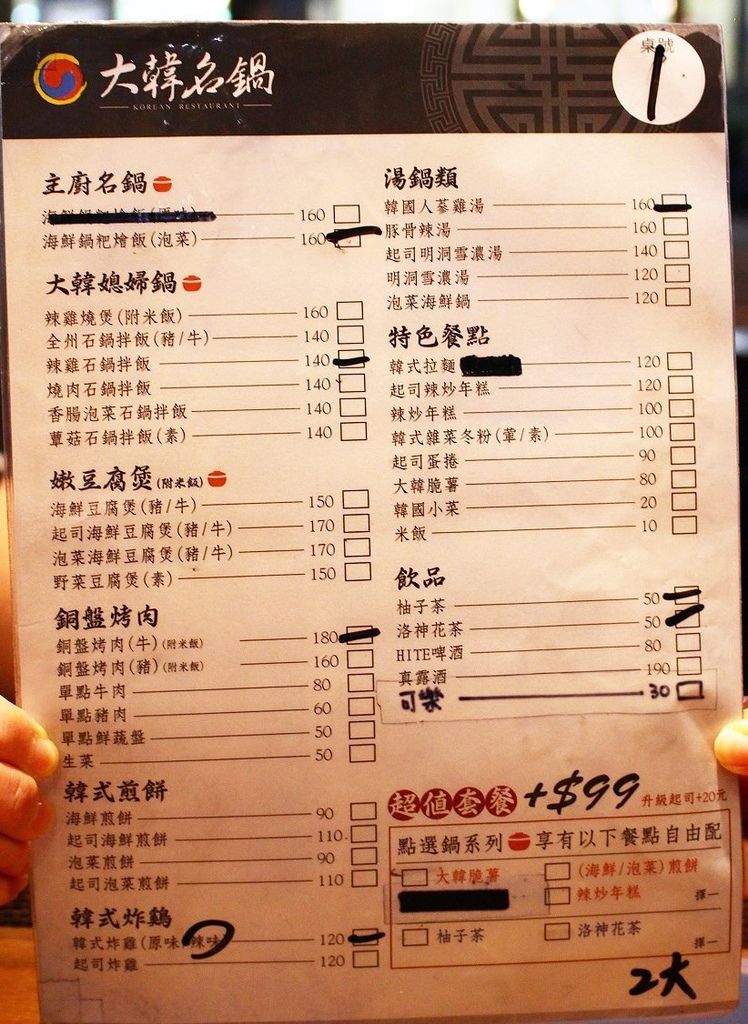 大韓名鍋
KOREAN RESTAURANT
桌號
1
主廚名鍋
海鮮鍋粑燴飯(原味) 160
海鮮鍋粑燴飯(泡菜) 160
大韓媳婦鍋
辣雞燒煲(附米飯) 160
全州石鍋拌飯(豬/牛) 140
辣雞石鍋拌飯 140
燒肉石鍋拌飯 140
香腸泡菜石鍋拌飯 140
蕈菇石鍋拌飯(素) 140
嫩豆腐煲(附米飯)
海鮮豆腐煲(豬/牛) 150
起司海鮮豆腐煲(豬/牛) 170
泡菜海鮮豆腐煲(豬/牛) 170
野菜豆腐煲(素) 150
銅盤烤肉
銅盤烤肉(牛)(附米飯) 180
銅盤烤肉(豬)(附米飯) 160
單點牛肉 80
單點豬肉 60
單點鮮蔬盤 50
生菜 50
韓式煎餅
海鮮煎餅 90
起司海鮮煎餅 110
泡菜煎餅 90
起司泡菜煎餅 110
韓式炸鷄
韓式炸雞(原味/辣味) 120
起司炸雞 120
湯鍋類
韓國人蔘雞湯 160
豚骨辣湯 160
起司明洞雪濃湯 140
明洞雪濃湯 120
泡菜海鮮鍋 120
特色餐點
韓式拉麵 120
起司辣炒年糕 120
辣炒年糕 100
韓式雜菜冬粉(葷/素) 100
起司蛋捲 90
大韓脆薯 80
韓國小菜 20
米飯 10
飲品
柚子茶 50
洛神花茶 50
HITE啤酒 80
真露酒 190
可樂 30
超值套餐 +$99 升級起司+20元
點選鍋系列 享有以下餐點自由配
大韓脆薯 (海鮮/泡菜)煎餅
辣炒年糕 擇一
柚子茶 洛神花茶 擇一
2大